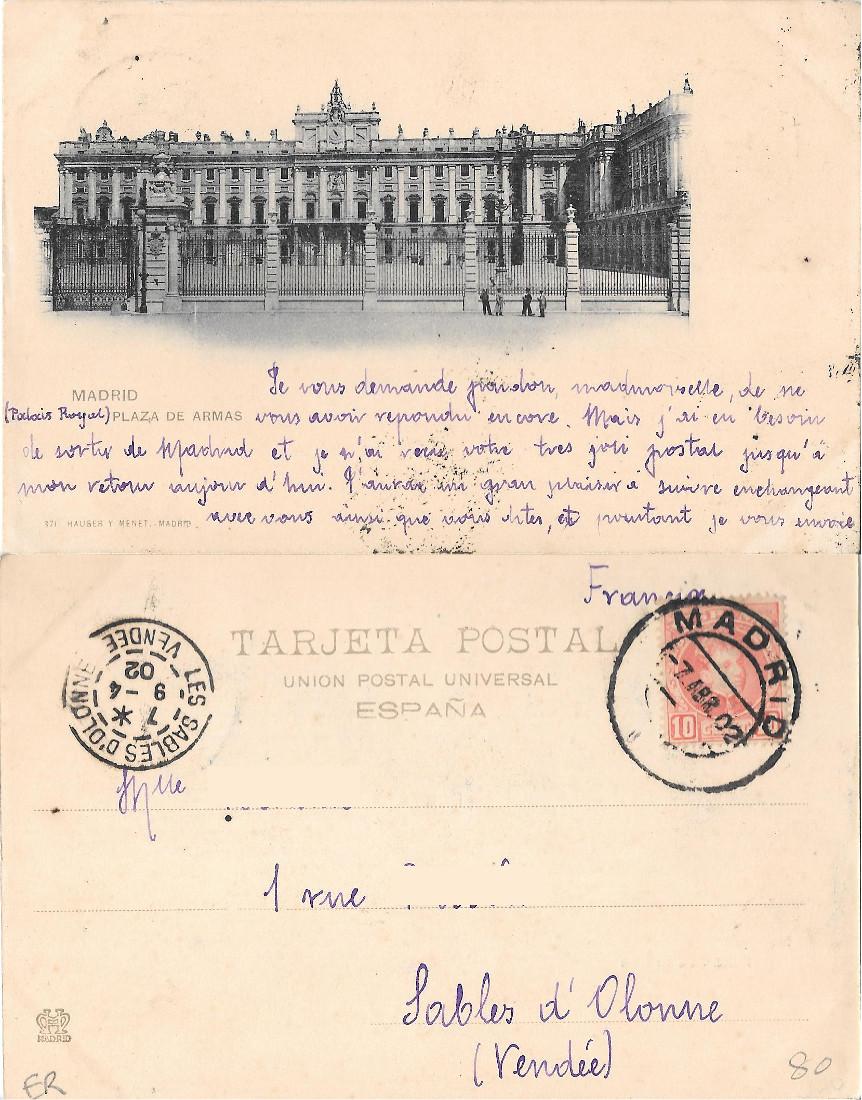 MADRID
(Palais Royal) PLAZA DE ARMAS
Je vous demande pardon, madmoiselle, de ne
vous avoir repondu encore. Mais j'ai eu besoin
de sortir de Madrid et je n'ai reçu votre tres joli postal jusqu'à
mon retour aujour d'hui. J'aurai un gran plaisir à suivre enchangeant
371 HAUSER Y MENET.-MADRID
avec vous ainsi que vous dites, et pourtant je vous envoie
Francia
TARJETA POSTAL
UNION POSTAL UNIVERSAL
ESPAÑA
LES SABLES D'OLONNE
VENDÉE
7 * 9 -4 02
MADRID
7 ABR. 02
10
Mlle
1 rue
Sables d'Olonne
(Vendée)
MADRID
ER
80